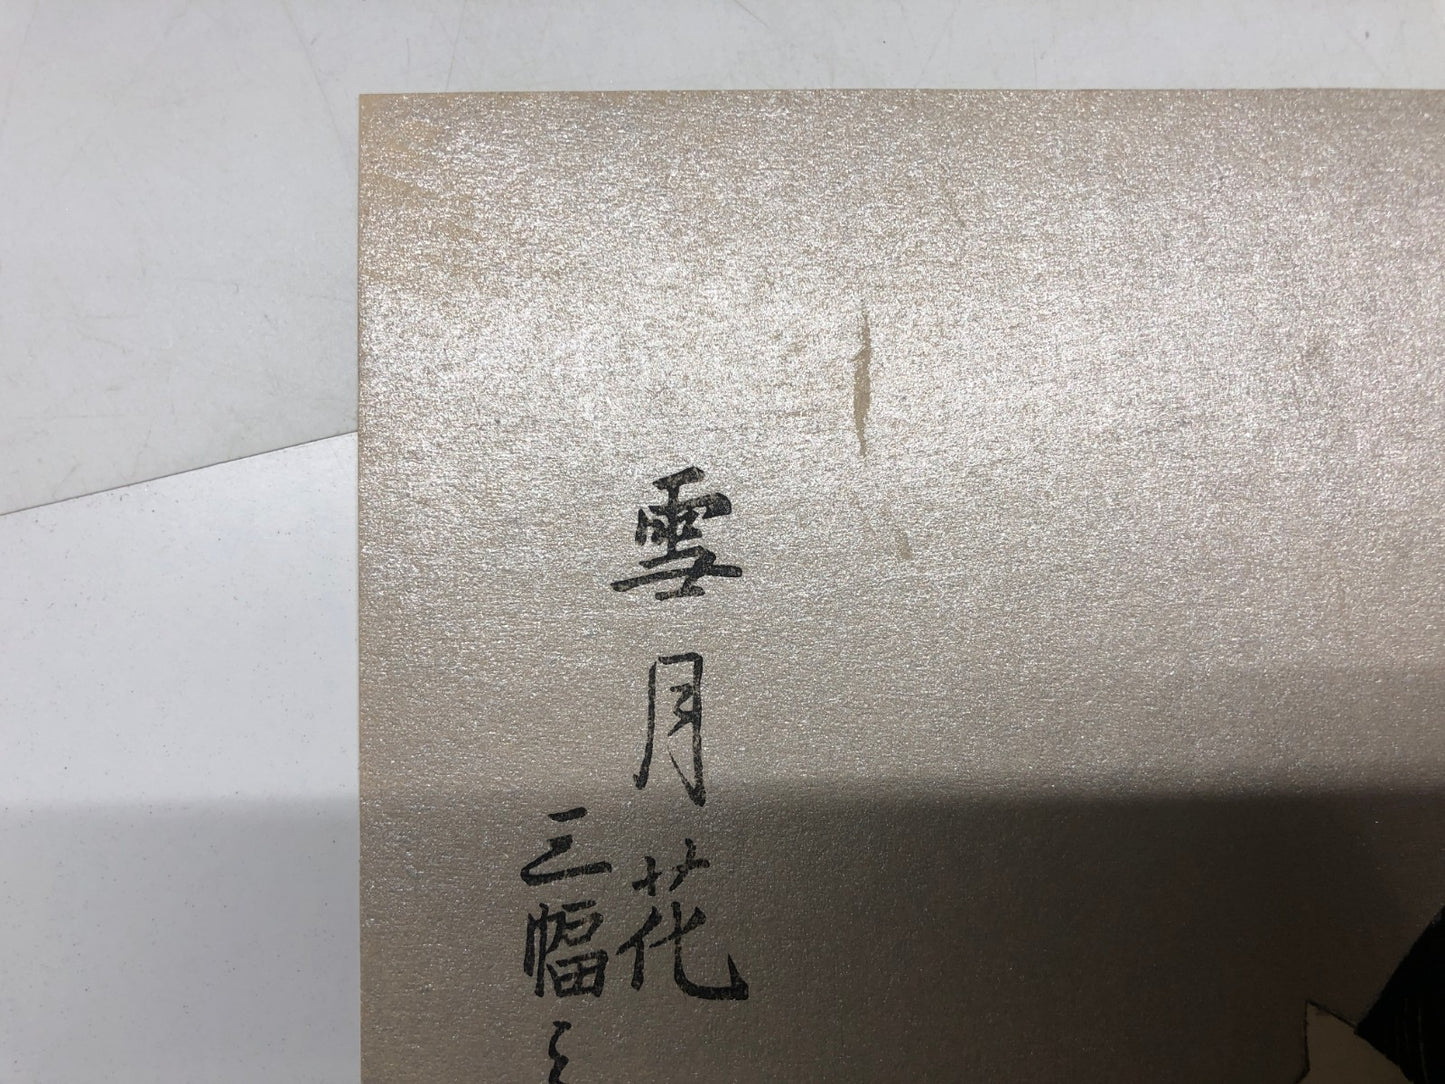 雪月花
三幅之